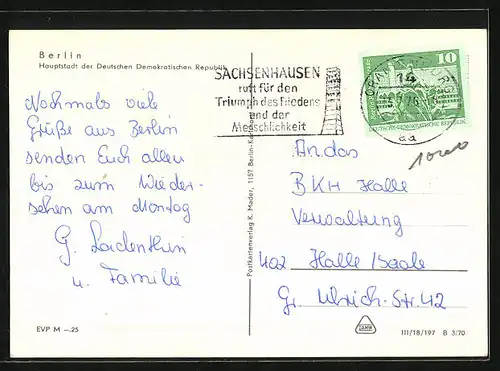 Berlin
Hauptstadt der Deutschen Demokratischen Republik
SACHSENHAUSEN
ruft für den
Triumph des Friedens
und der
Menschlichkeit
10
DEUTSCHE DEMOKRATISCHE REPUBLIK
Nochmals viele
Grüße aus Berlin
senden Euch allen
bis zum Wieder-
sehen am Montag
G. Ladenthin
u. Familie
An das
BKH Halle
Verwaltung
402 Halle/Saale
Gr. Ulrich-Str. 42
Postkartenverlag K. Mader, 1157 Berlin-
EVP M –.25
III/18/197 B 3/70